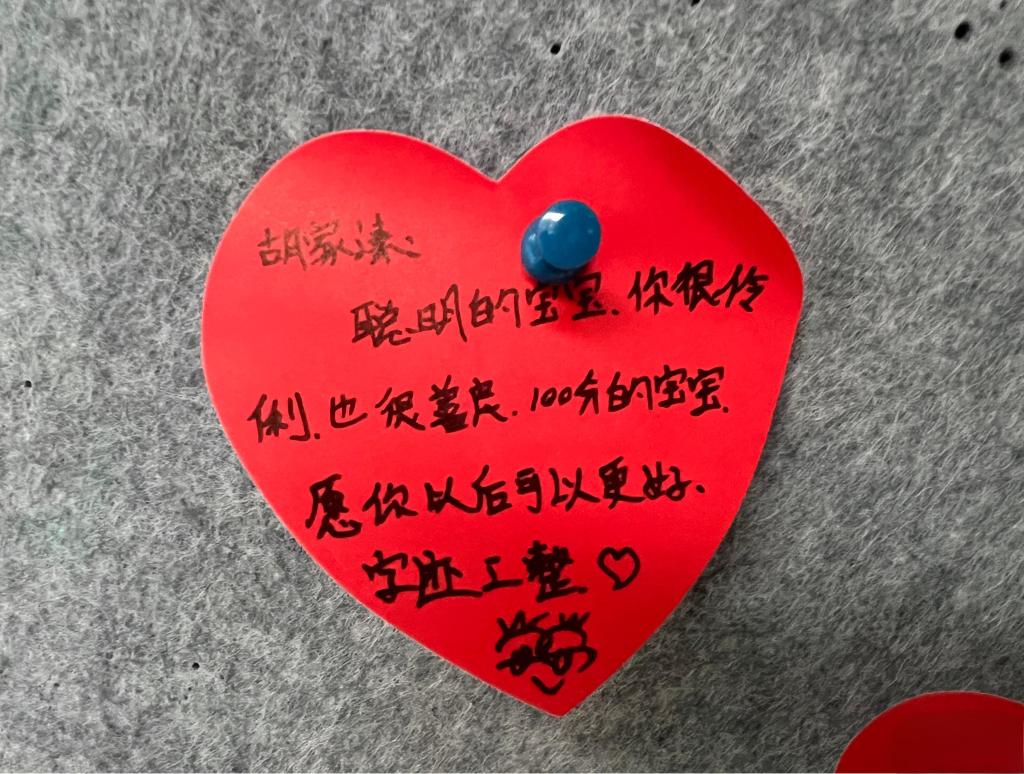 胡家溱:
聪明的宝宝.你很伶
俐.也很善良.100分的宝宝.
愿你以后可以更好.
字迹工整♡